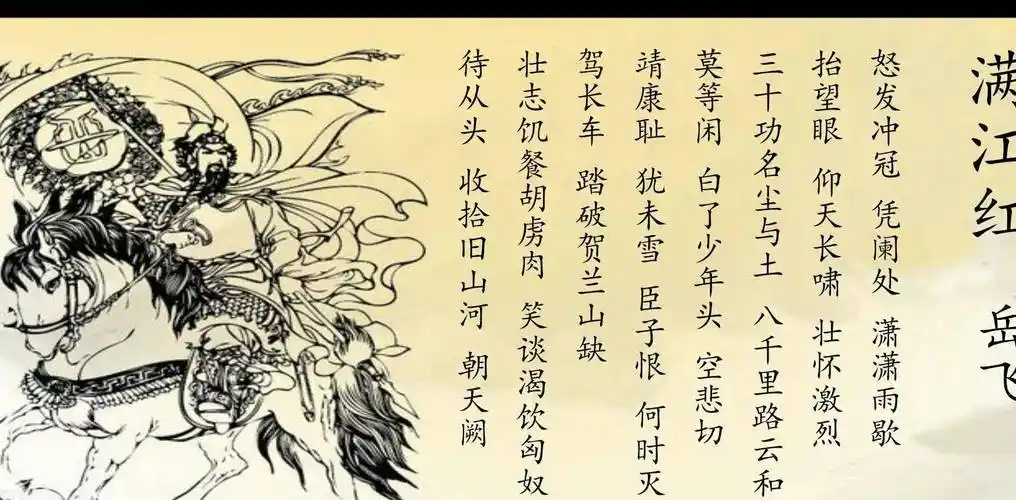 满江红
岳飞
怒发冲冠 凭阑处 潇潇雨歇
抬望眼 仰天长啸 壮怀激烈
三十功名尘与土 八千里路云和
莫等闲 白了少年头 空悲切
靖康耻 犹未雪 臣子恨 何时灭
驾长车 踏破贺兰山缺
壮志饥餐胡虏肉 笑谈渴饮匈奴
待从头 收拾旧山河 朝天阙